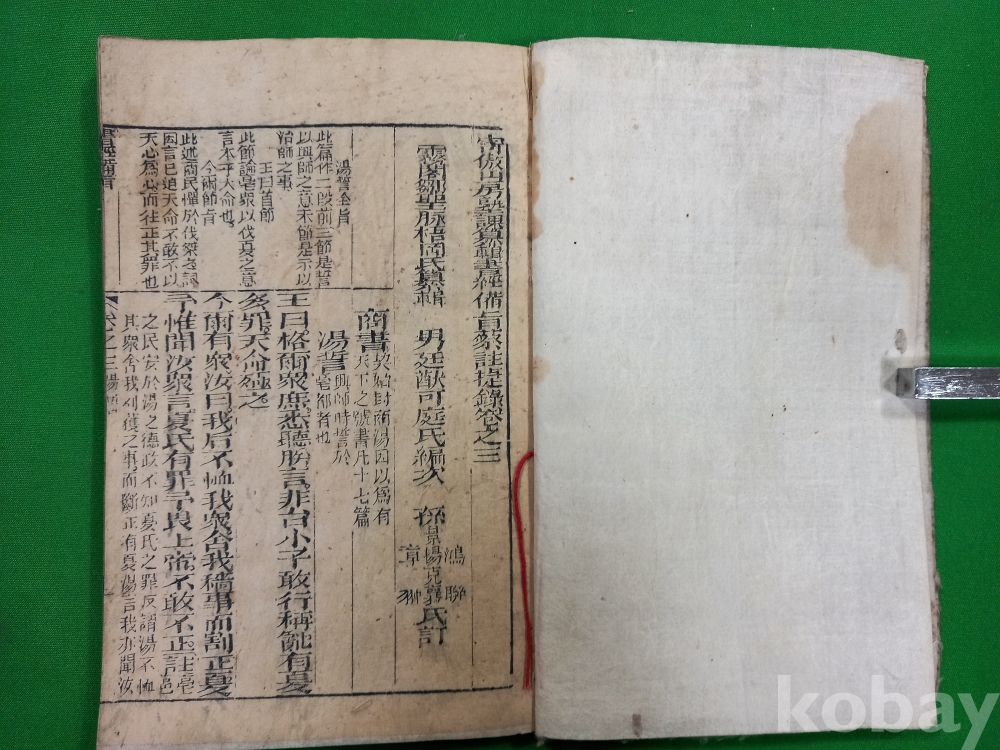 寄傲山房塾課纂輯書經備旨蔡註捷錄卷之三
霧閣鄒聖脉梧岡氏纂輯 男廷猷可庭氏編次 孫景揚克襄氏訂
鴻聯
章翀
商書
契始封商湯因以為有
天下之號書凡十七篇
湯誓
興師時誓於
亳都者也
王曰格爾眾庶悉聽朕言非台小子敢行稱亂有夏
多罪天命殛之
今爾有眾汝曰我后不恤我眾舍我穡事而割正夏
予惟聞汝眾言夏氏有罪予畏上帝不敢不正
註亳邑
之民安於湯之德政不知夏氏之罪反謂湯不恤
其眾舍我刈穫之事而斷正有夏湯言我亦聞汝
湯誓全旨
此篇作二段前三節是誓
以興師之意末節是示以
治師之事
王曰首節
此節諭亳眾以伐夏之意
言本于天命也
今爾節旨
此述商民憚於伐桀之詞
因言已迫天命不敢不以
天心為心而往正其罪也
書經備旨
卷之三 湯誓
kobay